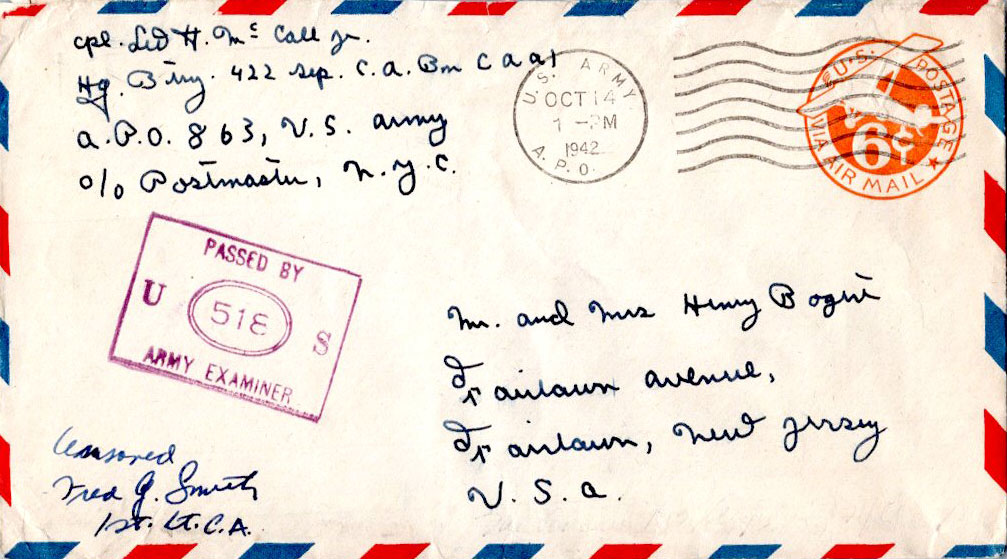 cpl. Led H. Mc Call Jr.
Hq. Btry. 422 sep. C.A. Bn C A A A
a.P.O. 863, U.S. army
c/o Postmaster, N.Y.C.
U.S. ARMY
OCT 14
1 - PM
1942
A.P.O.
U.S. POSTAGE
6¢
VIA AIR MAIL
PASSED BY
U 518 S
ARMY EXAMINER
Mr. and Mrs Henry Bogert
Fairlawn avenue,
Fairlawn, New Jersey
U.S.a.
Censored
Fred G. Smith
1st. Lt. C.A.